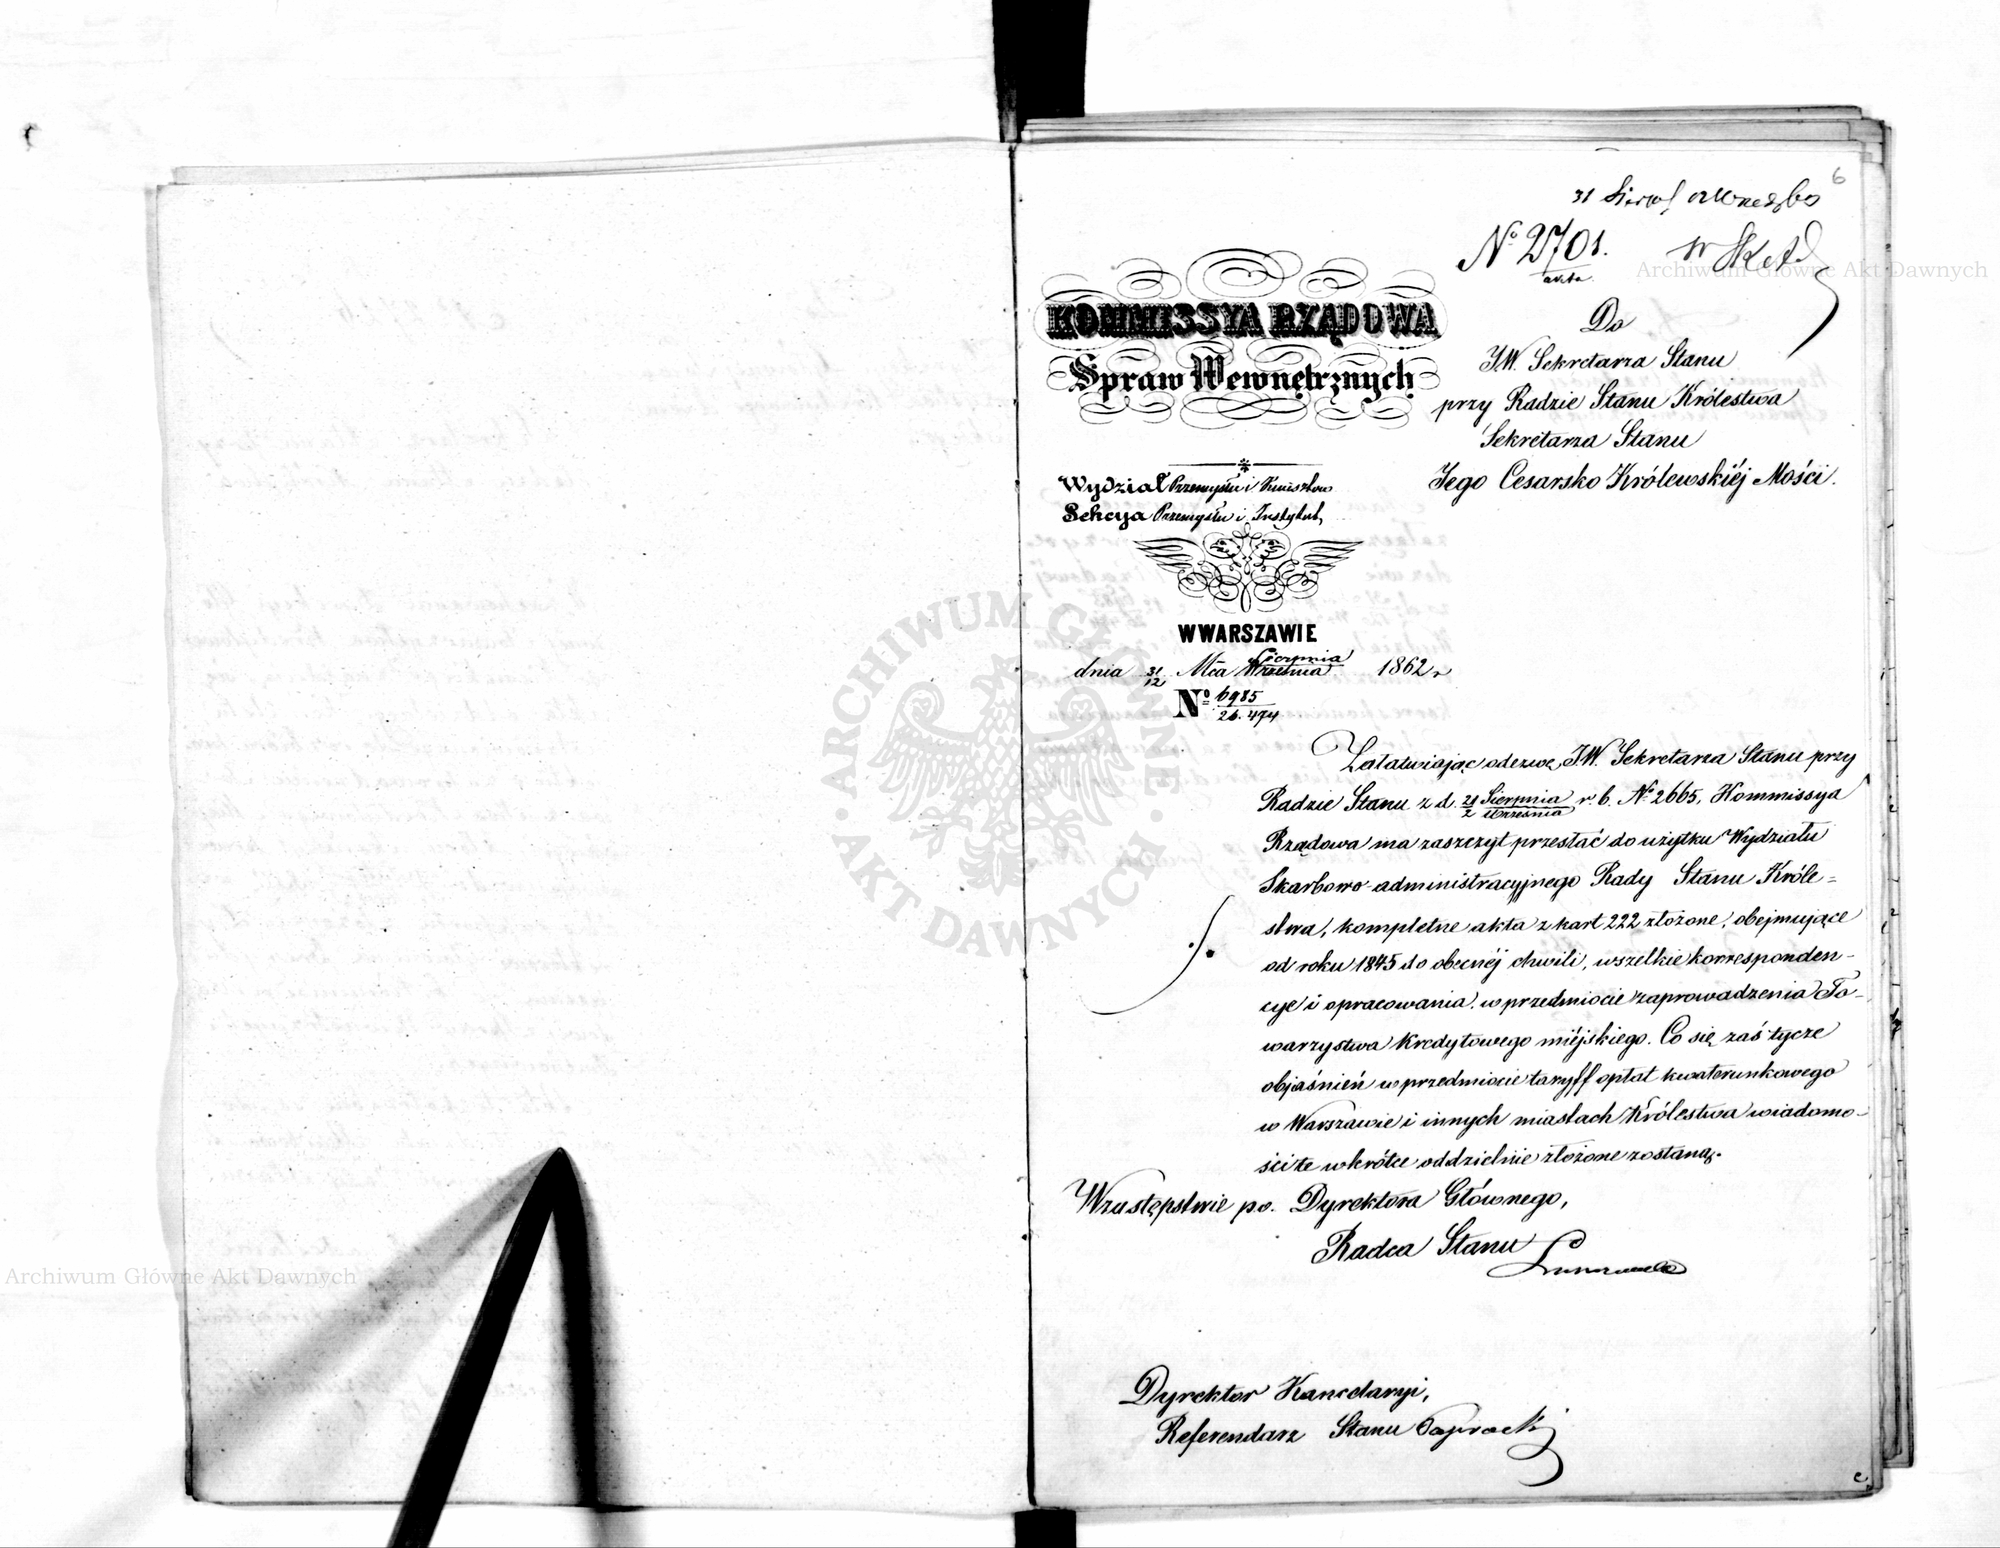 6
31 Sierp
No 2701.
Do
J.W. Sekretarza Stanu
przy Radzie Stanu Królestwa
Sekretarza Stanu
Jego Cesarsko Królewskiéj Mości.
KOMMISSYA RZĄDOWA
Spraw Wewnętrznych
Wydział Przemysłu i Kunsztów
Sekcya Przemysłu i Instytut,
W WARSZAWIE
dnia 31/12 Mca Sierpnia/Września 1862 r
No 6985/26.474
Załatwiając odezwę J.W. Sekretarza Stanu przy
Radzie Stanu z d. 21/2 Sierpnia/Września r. b. No 2665, Kommissya
Rządowa ma zaszczyt przesłać do użytku Wydziału
Skarbowo-administracyjnego Rady Stanu Króle=
stwa, kompletne akta z kart 222 złożone, obejmujące
od roku 1845 do obecnéj chwili, wszelkie korresponden-
cye i opracowania w przedmiocie zaprowadzenia To-
warzystwa Kredytowego miéjskiego. Co się zaś tycze
objaśnień w przedmiocie taryff opłat kwaterunkowego
w Warszawie i innych miastach Królestwa wiadomo-
ści te wkrótce oddzielnie złożone zostaną.
W zastępstwie p.o. Dyrektora Głównego,
Radca Stanu
Dyrektor Kancelaryi,
Referendarz Stanu Paprocki
Archiwum Główne Akt Dawnych
Archiwum Główne Akt Dawnych
ARCHIWUM GŁÓWNE AKT DAWNYCH